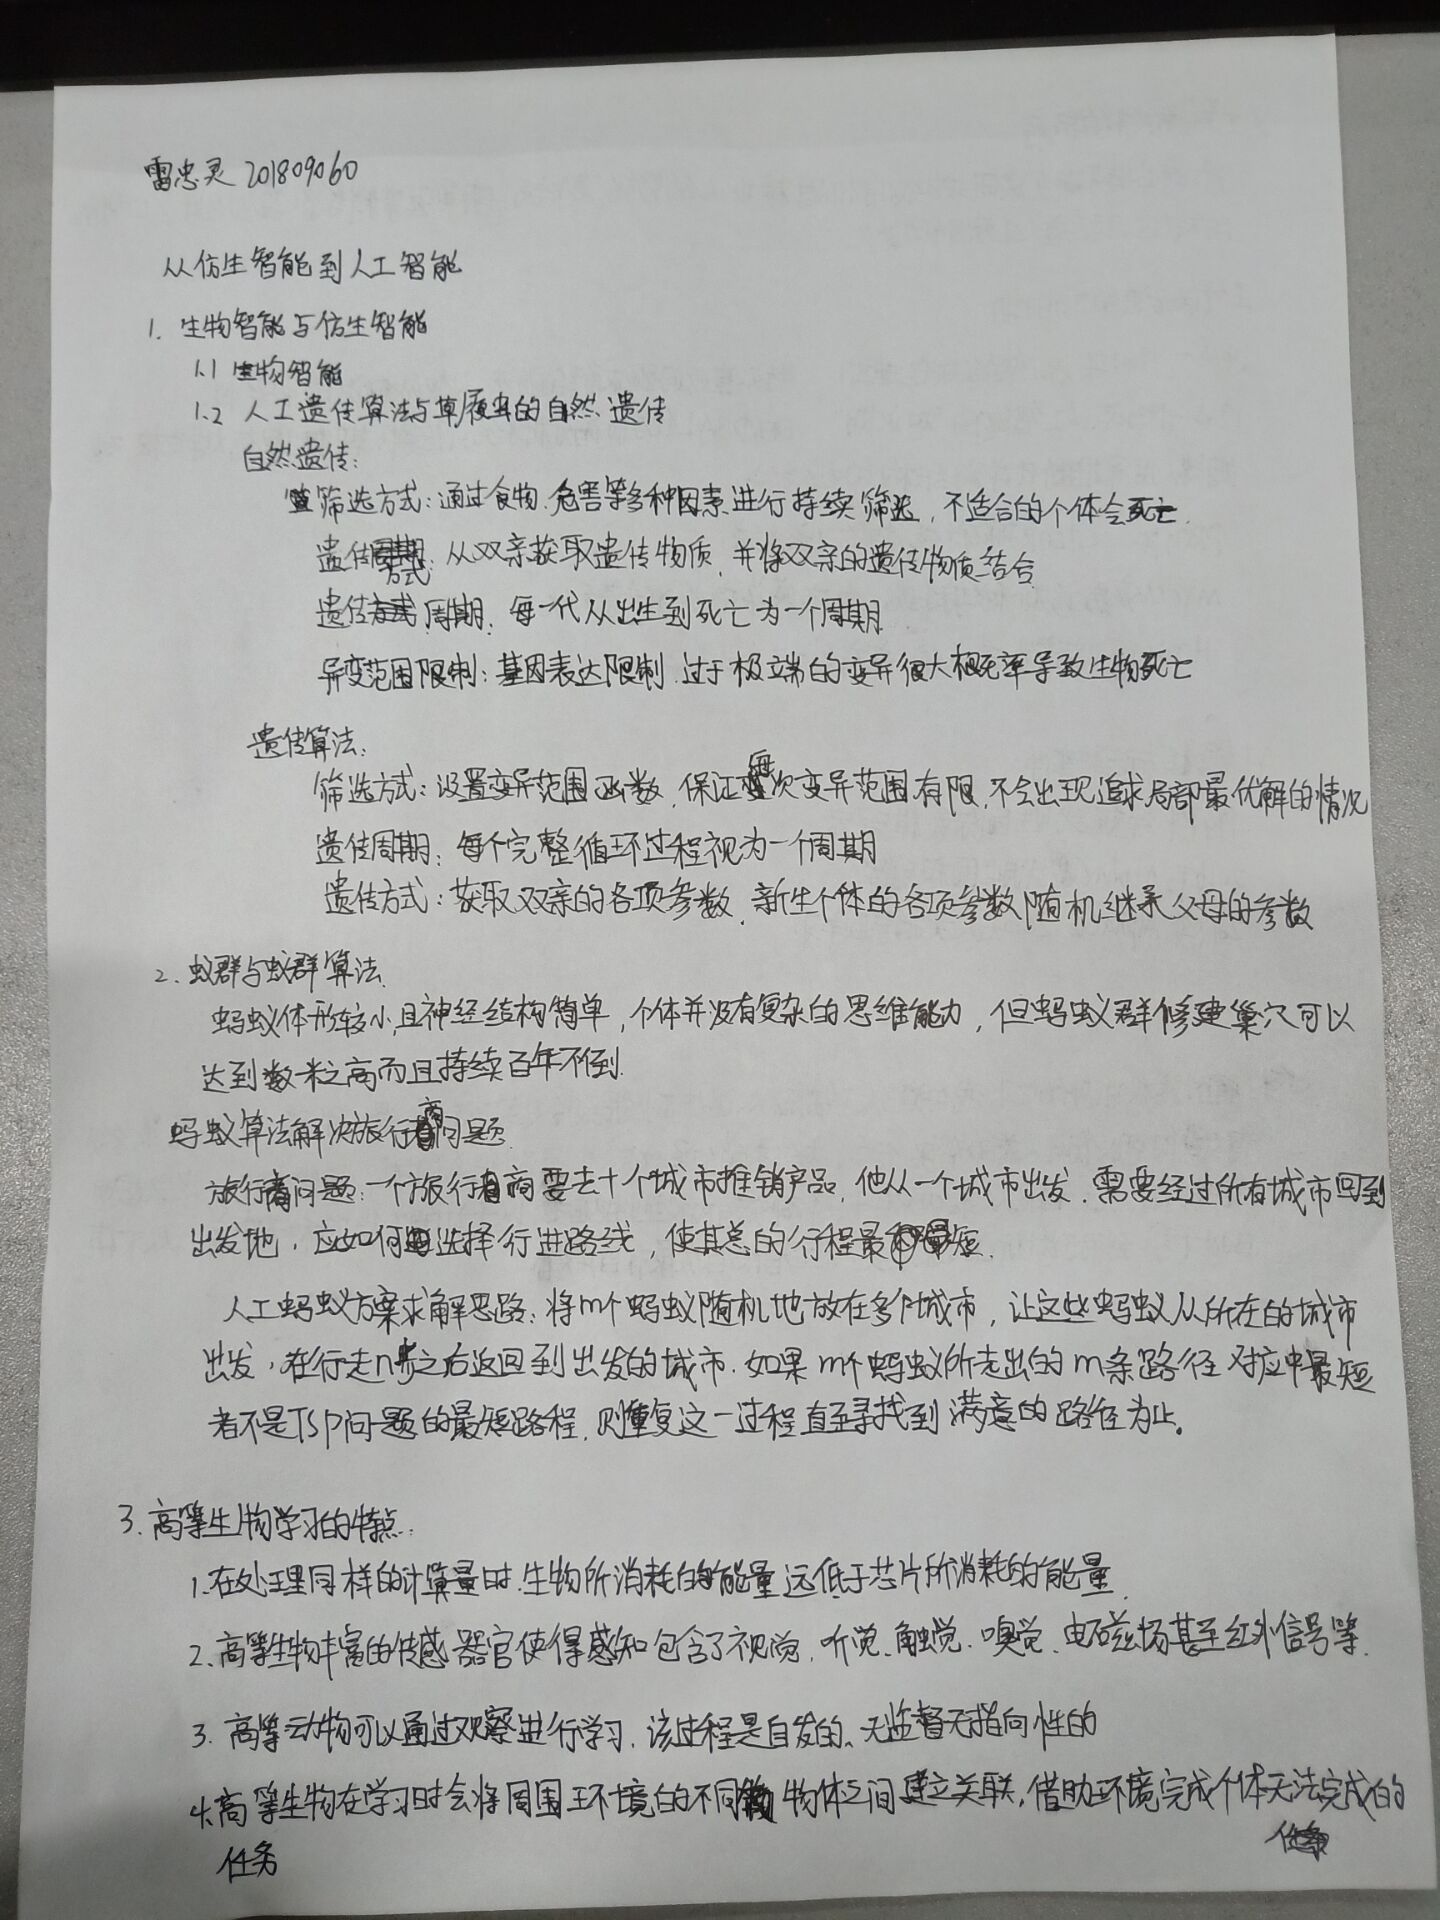 雷忠灵 201809060
从仿生智能到人工智能
1. 生物智能与仿生智能
1.1 生物智能
1.2 人工遗传算法与草履虫的自然遗传
自然遗传:
筛选方式:通过食物.危害等多种因素进行持续筛选,不适合的个体会死亡.
遗传方式:从双亲获取遗传物质,并将双亲的遗传物质结合
遗传周期:每一代从出生到死亡为一个周期
异变范围限制:基因表达限制.过于极端的变异很大概率导致生物死亡
遗传算法:
筛选方式:设置变异范围函数,保证每次变异范围有限,不会出现追求局部最优解的情况
遗传周期:每个完整循环过程视为一个周期
遗传方式:获取双亲的各项参数,新生个体的各项参数随机继承父母的参数
2. 蚁群与蚁群算法
蚂蚁体形较小,且神经结构简单,个体并没有复杂的思维能力,但蚂蚁群修建巢穴可以
达到数米之高而且持续百年不倒.
蚂蚁算法解决旅行商问题.
旅行商问题:一个旅行商要去十个城市推销产品,他从一个城市出发.需要经过所有城市回到
出发地,应如何选择行进路线,使其总的行程最短.
人工蚂蚁方案求解思路:将m个蚂蚁随机地放在多个城市,让这些蚂蚁从所在的城市
出发,在行走n步之后返回到出发的城市.如果m个蚂蚁所走出的m条路径对应中最短
者不是TSP问题的最短路程,则重复这一过程直至寻找到满意的路径为止。
3. 高等生物学习的特点:
1.在处理同样的计算量时.生物所消耗的能量远低于芯片所消耗的能量.
2.高等生物丰富的传感器官使得感知包含了视觉,听觉、触觉.嗅觉.电磁场甚至红外信号等.
3. 高等动物可以通过观察进行学习,该过程是自发的、无监督无指向性的
4.高等生物在学习时会将周围环境的不同物体之间建立关联,借助环境完成个体无法完成的
任务